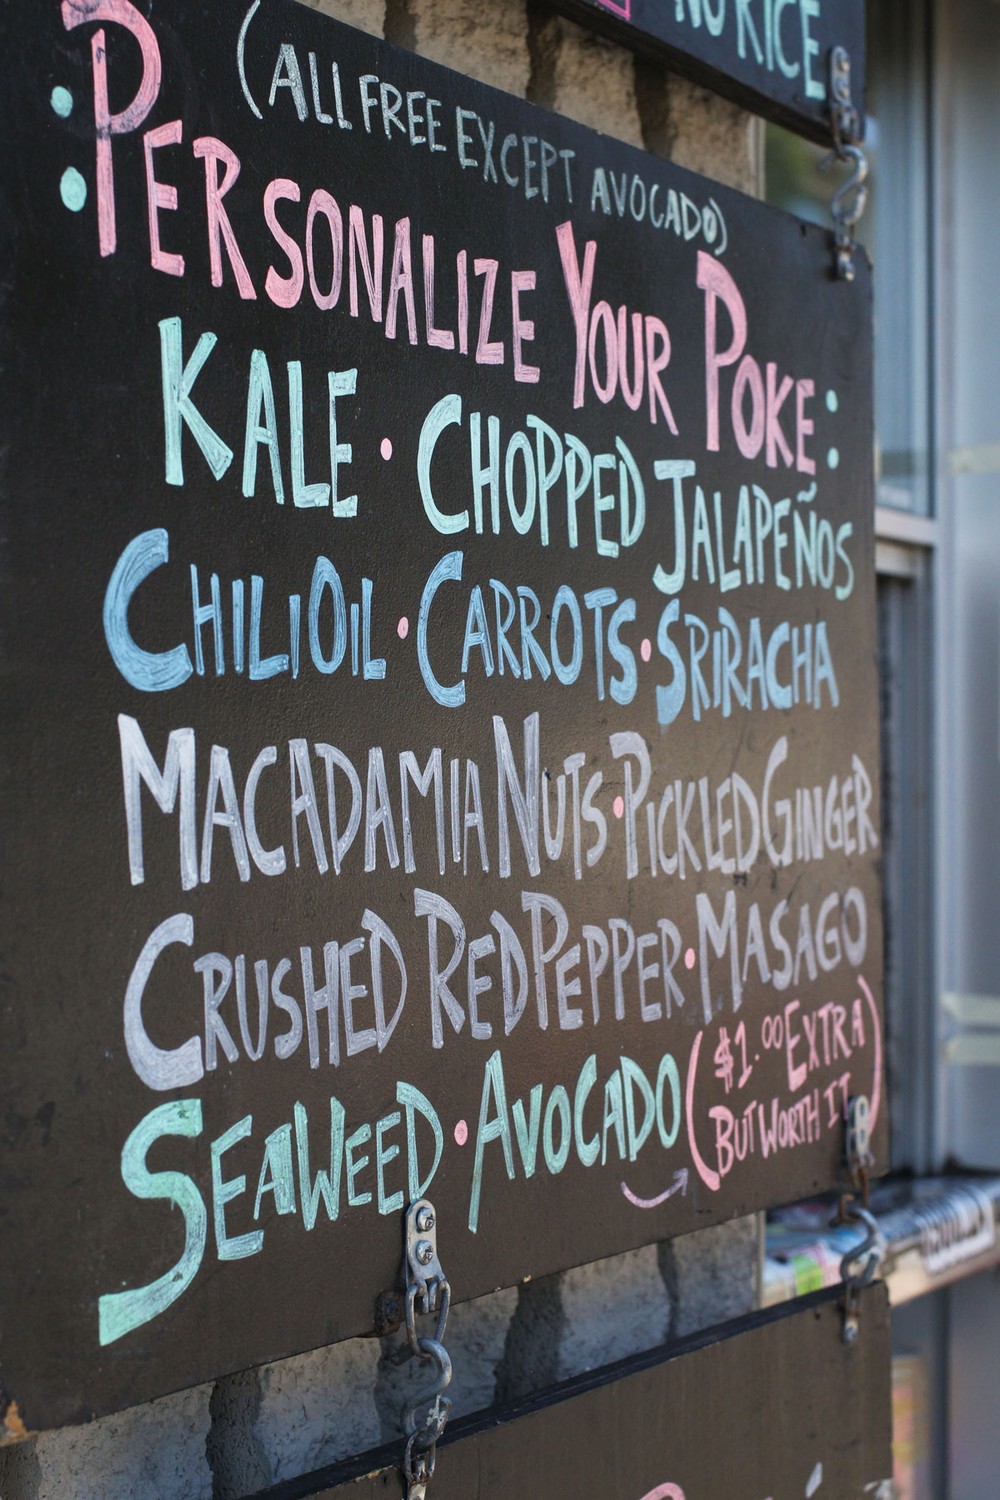 NO RICE
(ALL FREE EXCEPT AVOCADO)
: PERSONALIZE YOUR POKE :
KALE · CHOPPED JALAPEÑOS
CHILI OIL · CARROTS · SRIRACHA
MACADAMIA NUTS · PICKLED GINGER
CRUSHED RED PEPPER · MASAGO
SEAWEED · AVOCADO ($1.00 EXTRA
BUT WORTH IT)